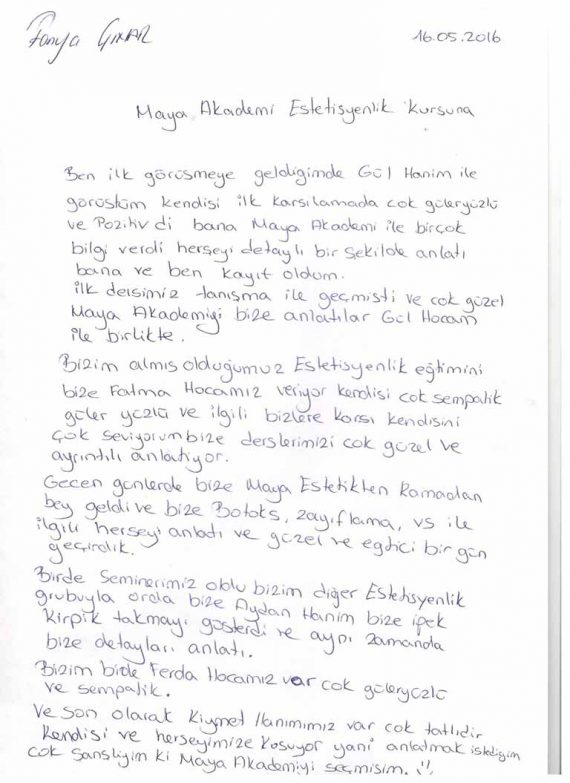 Tanya ÇINAR
16.05.2016
Maya Akademi Estetisyenlik Kursuna
Ben ilk görüşmeye geldiğimde Gül Hanim ile
görüştüm kendisi ilk karsılamada cok güleryüzlü
ve Pozitiv di bana Maya Akademi ile birçok
bilgi verdi herşeyi detaylı bir şekilde anlatı
bana ve ben kayıt oldum.
ilk dersimiz tanışma ile geçmisti ve cok güzel
Maya Akademiyi bize anlatılar Gül Hocam
ile birlikte.
Bizim almıs olduğumuz Estetisyenlik eğitimini
bize Fatma Hocamız veriyor kendisi cok sempatik
güler yüzlü ve ilgili bizlere karsı kendisini
çok seviyorum bize derslerimizi cok güzel ve
ayrıntılı anlatıyor.
Gecen günlerde bize Maya Estetikten Ramadan
bey geldi ve bize Botoks, zayıflama, vs ile
ilgili herseyi anlatı ve güzel ve eğitici bir gün
geçirdik.
Birde Seminerimiz oldu bizim diğer Estetisyenlik
grubuyla orda bize Aydan Hanim bize ipek
Kirpik takmayı gösterdi ve aynı zamanda
bize detayları anlatı.
Bizim birde Ferda Hocamız var cok güleryüzlü
ve sempatik.
Ve son olarak Kiymet Hanımımız var cok tatlıdır
kendisi ve herseyimize kosuyor yani anlatmak istediğim
cok sanslıyım ki Maya Akademiyi seçmisim. !!